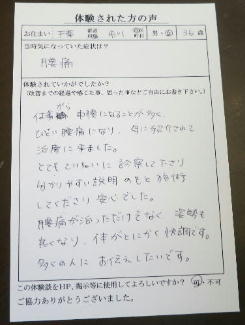 体験された方の声
お住まい 千葉 都道府県 市川 市区町村 男・女 36歳
当時気になっていた症状は？
腰痛
体験されていかがでしたか？
(改善までの経過や感じた事、思った事などご自由にお書き下さい。)
仕事がら 中腰になることが多く、
ひどい腰痛になり、 知人に紹介されて
治療に来ました。
とてもていねいに診察してくださり
分かりやすい説明のもと施術
してくださり安心でした。
腰痛が治っただけでなく 姿勢も
良くなり、体がとにかく快調です。
多くの人に お伝えしたいです。
この体験談をHP、掲示等に使用してよろしいですか？ 可・不可
ご協力ありがとうございました。